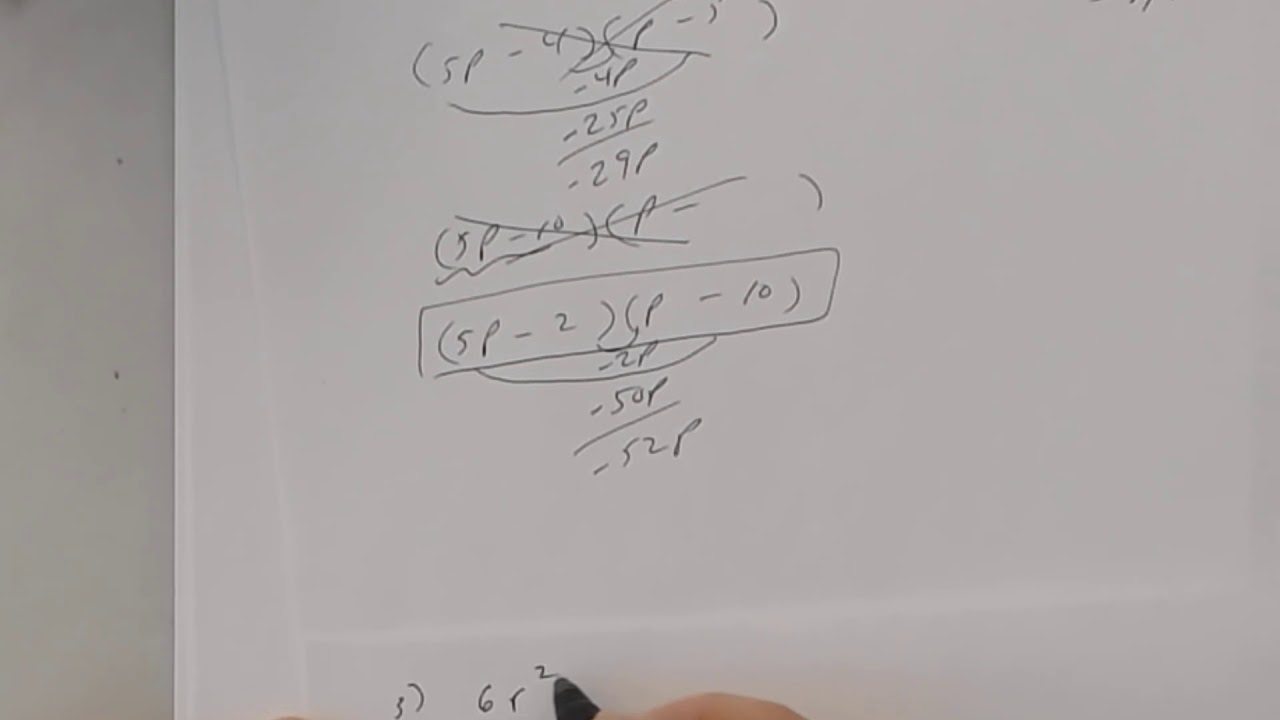 (5p - 4)(p - 5)
-4p
-25p
-29p
(5p - 10)(p - )
(5p - 2)(p - 10)
-2p
-50p
-52p
3) 6r²